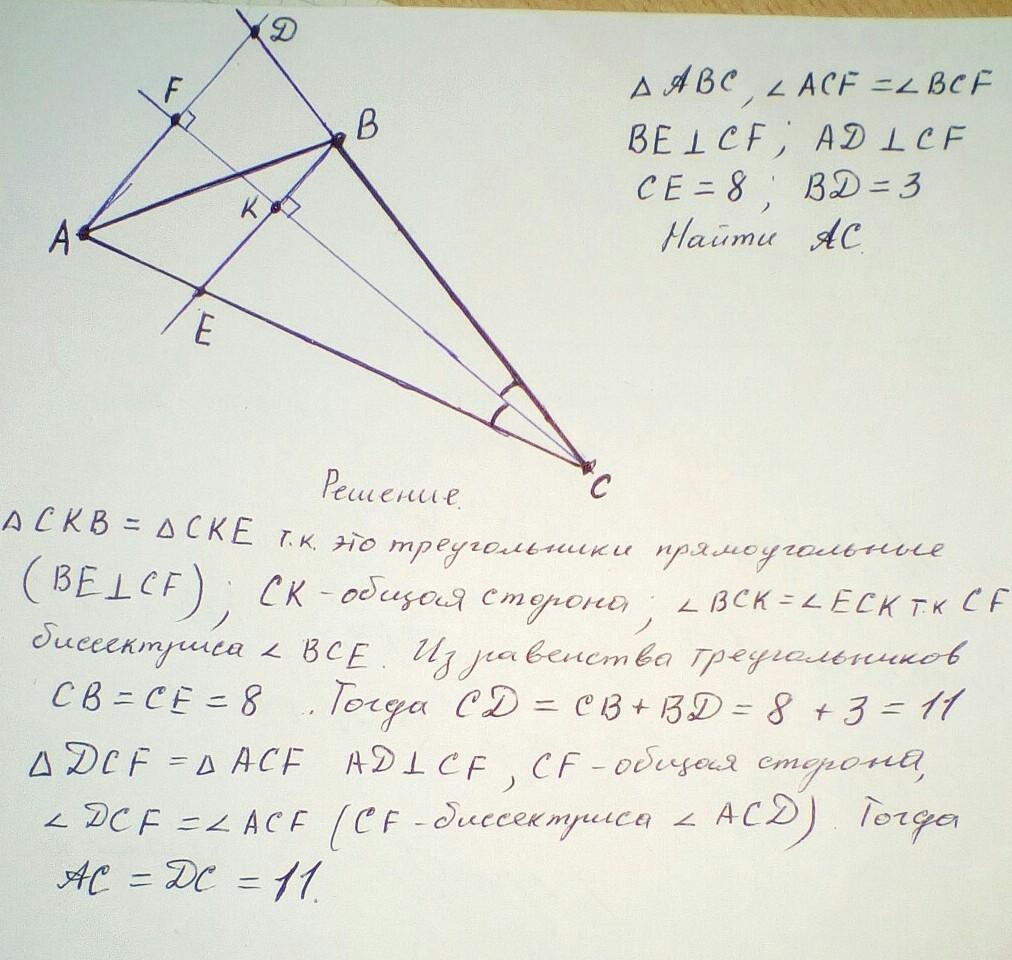 D
F
B
K
A
E
C
△ ABC, ∠ ACF = ∠ BCF
BE ⊥ CF; AD ⊥ CF
CE = 8; BD = 3
Найти AC.
Решение.
△ CKB = △ CKE т.к. это треугольники прямоугольные
(BE ⊥ CF); CK - общая сторона; ∠ BCK = ∠ ECK т.к CF
биссектриса ∠ BCE. Из равенства треугольников
CB = CE = 8. Тогда CD = CB + BD = 8 + 3 = 11
△ DCF = △ ACF AD ⊥ CF, CF - общая сторона,
∠ DCF = ∠ ACF (CF - биссектриса ∠ ACD). Тогда
AC = DC = 11.